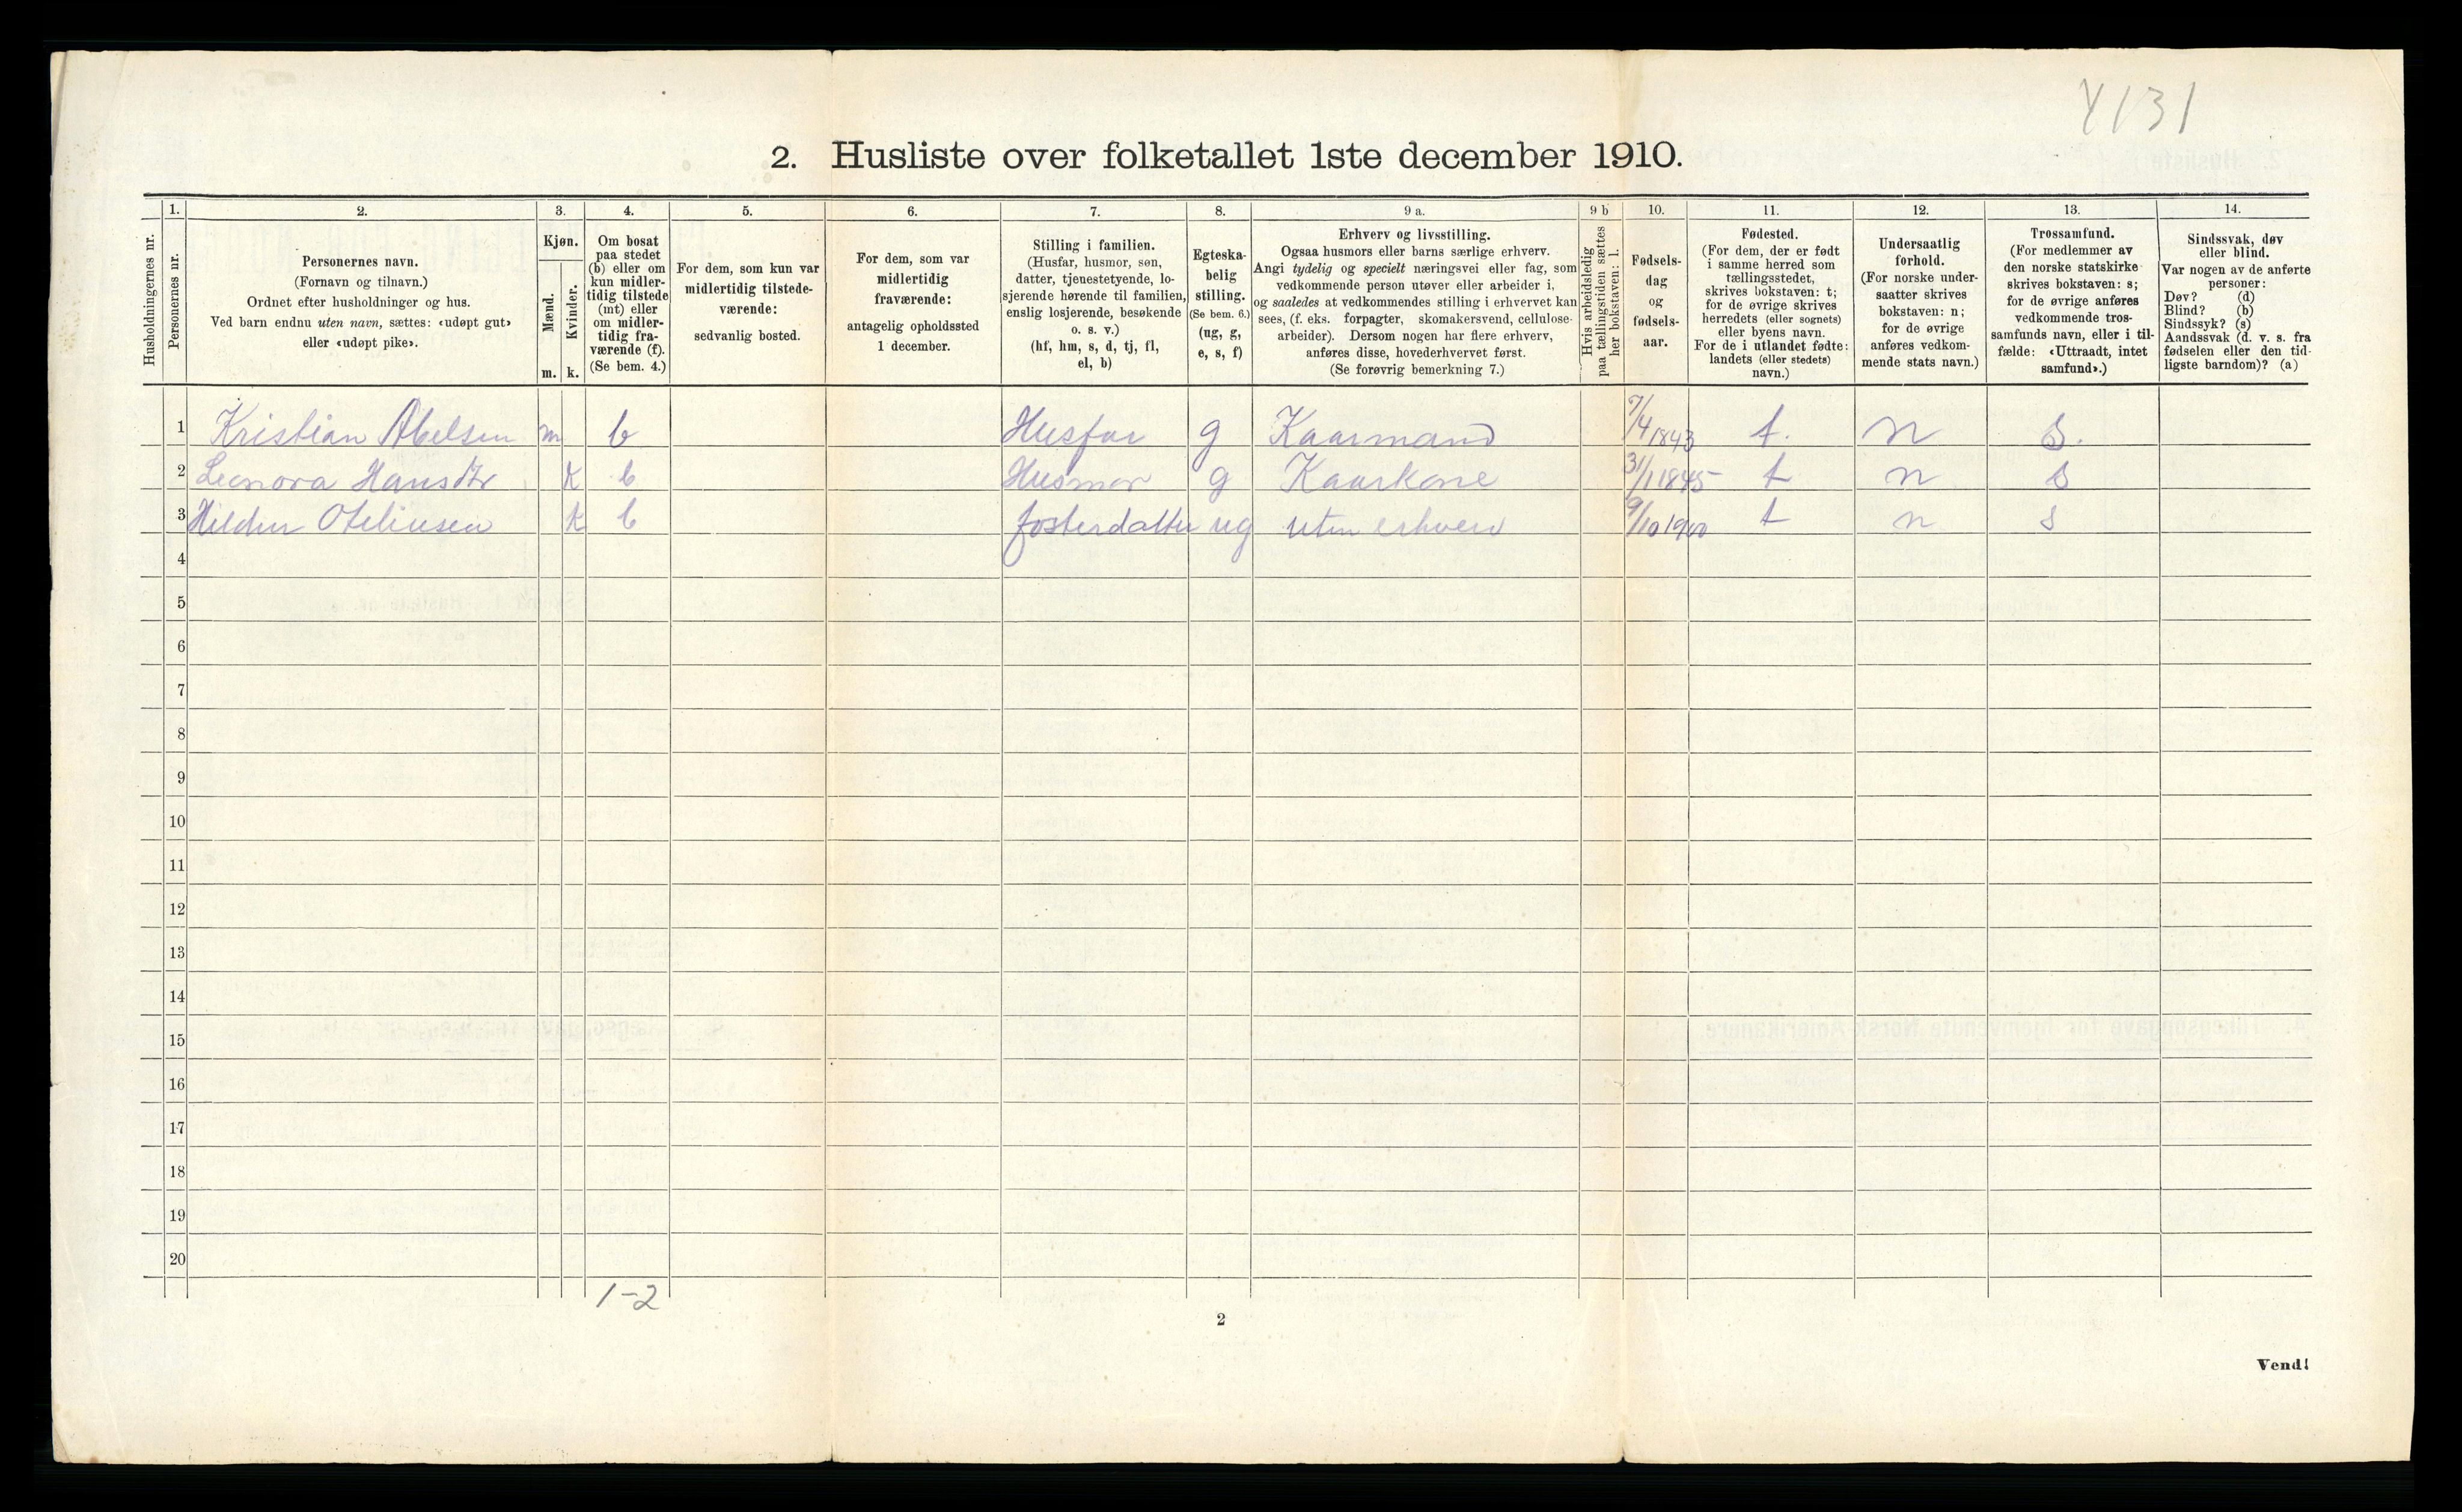 4131
2. Husliste over folketallet 1ste december 1910.
Husholdningernes nr.
1.
Personernes nr.
2.
Personernes navn.
(Fornavn og tilnavn.)
Ordnet efter husholdninger og hus.
Ved barn endnu uten navn, sættes: «udøpt gut»
eller «udøpt pike».
3.
Kjøn.
Mænd.
Kvinder.
m.
k.
4.
Om bosat
paa stedet
(b) eller om
kun midler-
tidig tilstede
(mt) eller
om midler-
tidig fra-
værende (f).
(Se bem. 4.)
5.
For dem, som kun var
midlertidig tilstede-
værende:
sedvanlig bosted.
6.
For dem, som var
midlertidig
fraværende:
antagelig opholdssted
1 december.
7.
Stilling i familien.
(Husfar, husmor, søn,
datter, tjenestetyende, lo-
sjerende hørende til familien,
enslig losjerende, besøkende
o. s. v.)
(hf, hm, s, d, tj, fl,
el, b)
8.
Egteska-
belig
stilling.
(Se bem. 6.)
(ug, g,
e, s, f)
9 a.
Erhverv og livsstilling.
Ogsaa husmors eller barns særlige erhverv.
Angi tydelig og specielt næringsvei eller fag, som
vedkommende person utøver eller arbeider i,
og saaledes at vedkommendes stilling i erhvervet kan
sees, (f. eks. forpagter, skomakersvend, cellulose-
arbeider). Dersom nogen har flere erhverv,
anføres disse, hovederhvervet først.
(Se forøvrig bemerkning 7.)
9 b
Hvis arbeidsledig
paa tællingstiden sættes
her bokstaven: l.
10.
Fødsels-
dag
og
fødsels-
aar.
11.
Fødested.
(For dem, der er født
i samme herred som
tællingsstedet,
skrives bokstaven: t;
for de øvrige skrives
herredets (eller sognets)
eller byens navn.
For de i utlandet fødte:
landets (eller stedets)
navn.)
12.
Undersaatlig
forhold.
(For norske under-
saatter skrives
bokstaven: n;
for de øvrige
anføres vedkom-
mende stats navn.)
13.
Trossamfund.
(For medlemmer av
den norske statskirke
skrives bokstaven: s;
for de øvrige anføres
vedkommende tros-
samfunds navn, eller i til-
fælde: «Uttraadt, intet
samfund».)
14.
Sindssvak, døv
eller blind.
Var nogen av de anførte
personer:
Døv? (d)
Blind? (b)
Sindssyk? (s)
Aandssvak (d. v. s. fra
fødselen eller den tid-
ligste barndom)? (a)
1 Kristian Abelsen m b Husfar g Kaarmand 7/4 1843 t. n s.
2 Leonora Hansdtr k b Husmor g Kaarkone 31/1 1845 t n s
3 Otelinsen k b fosterdatter ug uten erhverv 9/10 1900 t n s
4
5
6
7
8
9
10
11
12
13
14
15
16
17
18
19
20
1-2
2
Vend!